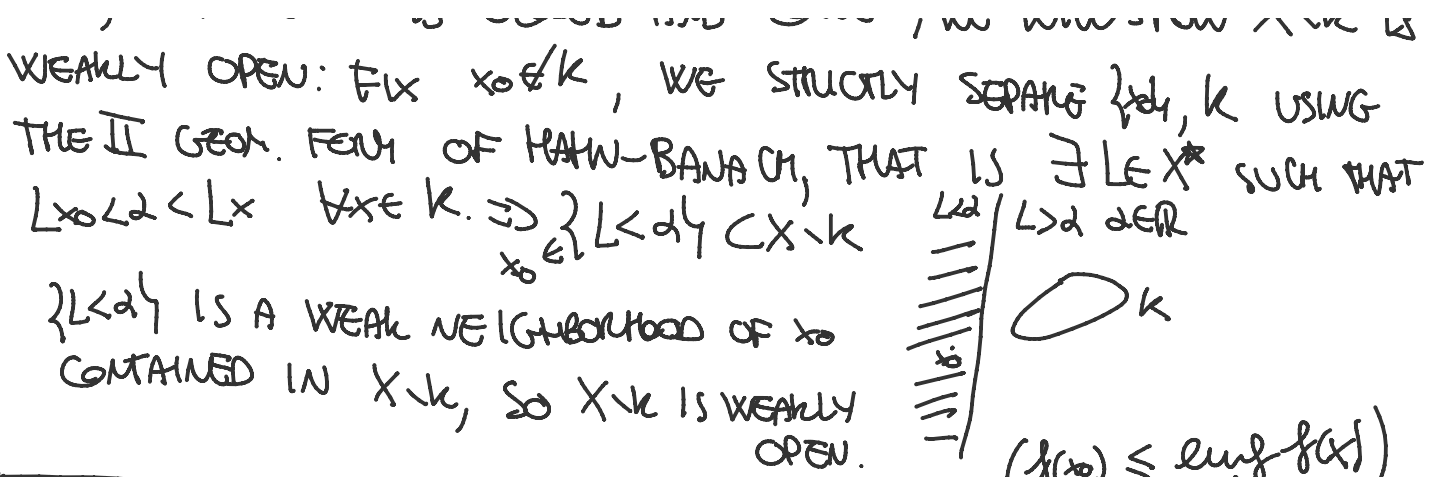 X∖K IS
WEAKLY OPEN: FIX x₀∉K, WE STRICTLY SEPARE {x₀}, K USING
THE II GEOM. FORM OF HAHN-BANACH, THAT IS ∃ L∈X* SUCH THAT
Lx₀<α<Lx ∀x∈K. ⇒ x₀∈{L<α}⊂X∖K
L<α L>α α∈ℝ
K
x₀
{L<α} IS A WEAK NEIGHBORHOOD OF x₀
CONTAINED IN X∖K, SO X∖K IS WEAKLY
OPEN.
(f(x₀) ≤ f(x))